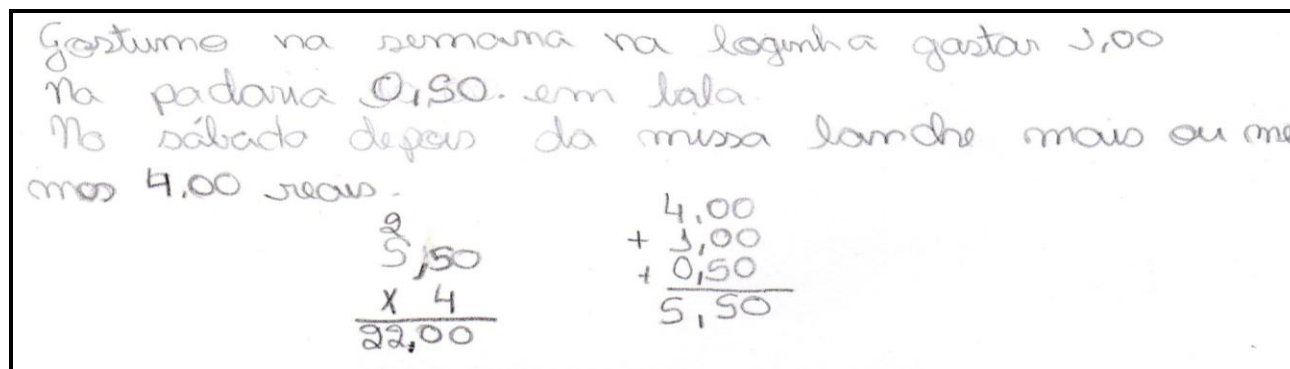 Gostumo na semana na loginha gastar 1,00
Na padaria 0,50. em bala
No sábado depois da missa lanche mais ou me
mos 4.00 reais.
2
5,50
x 4
22,00
4,00
+ 1,00
+ 0,50
5,50